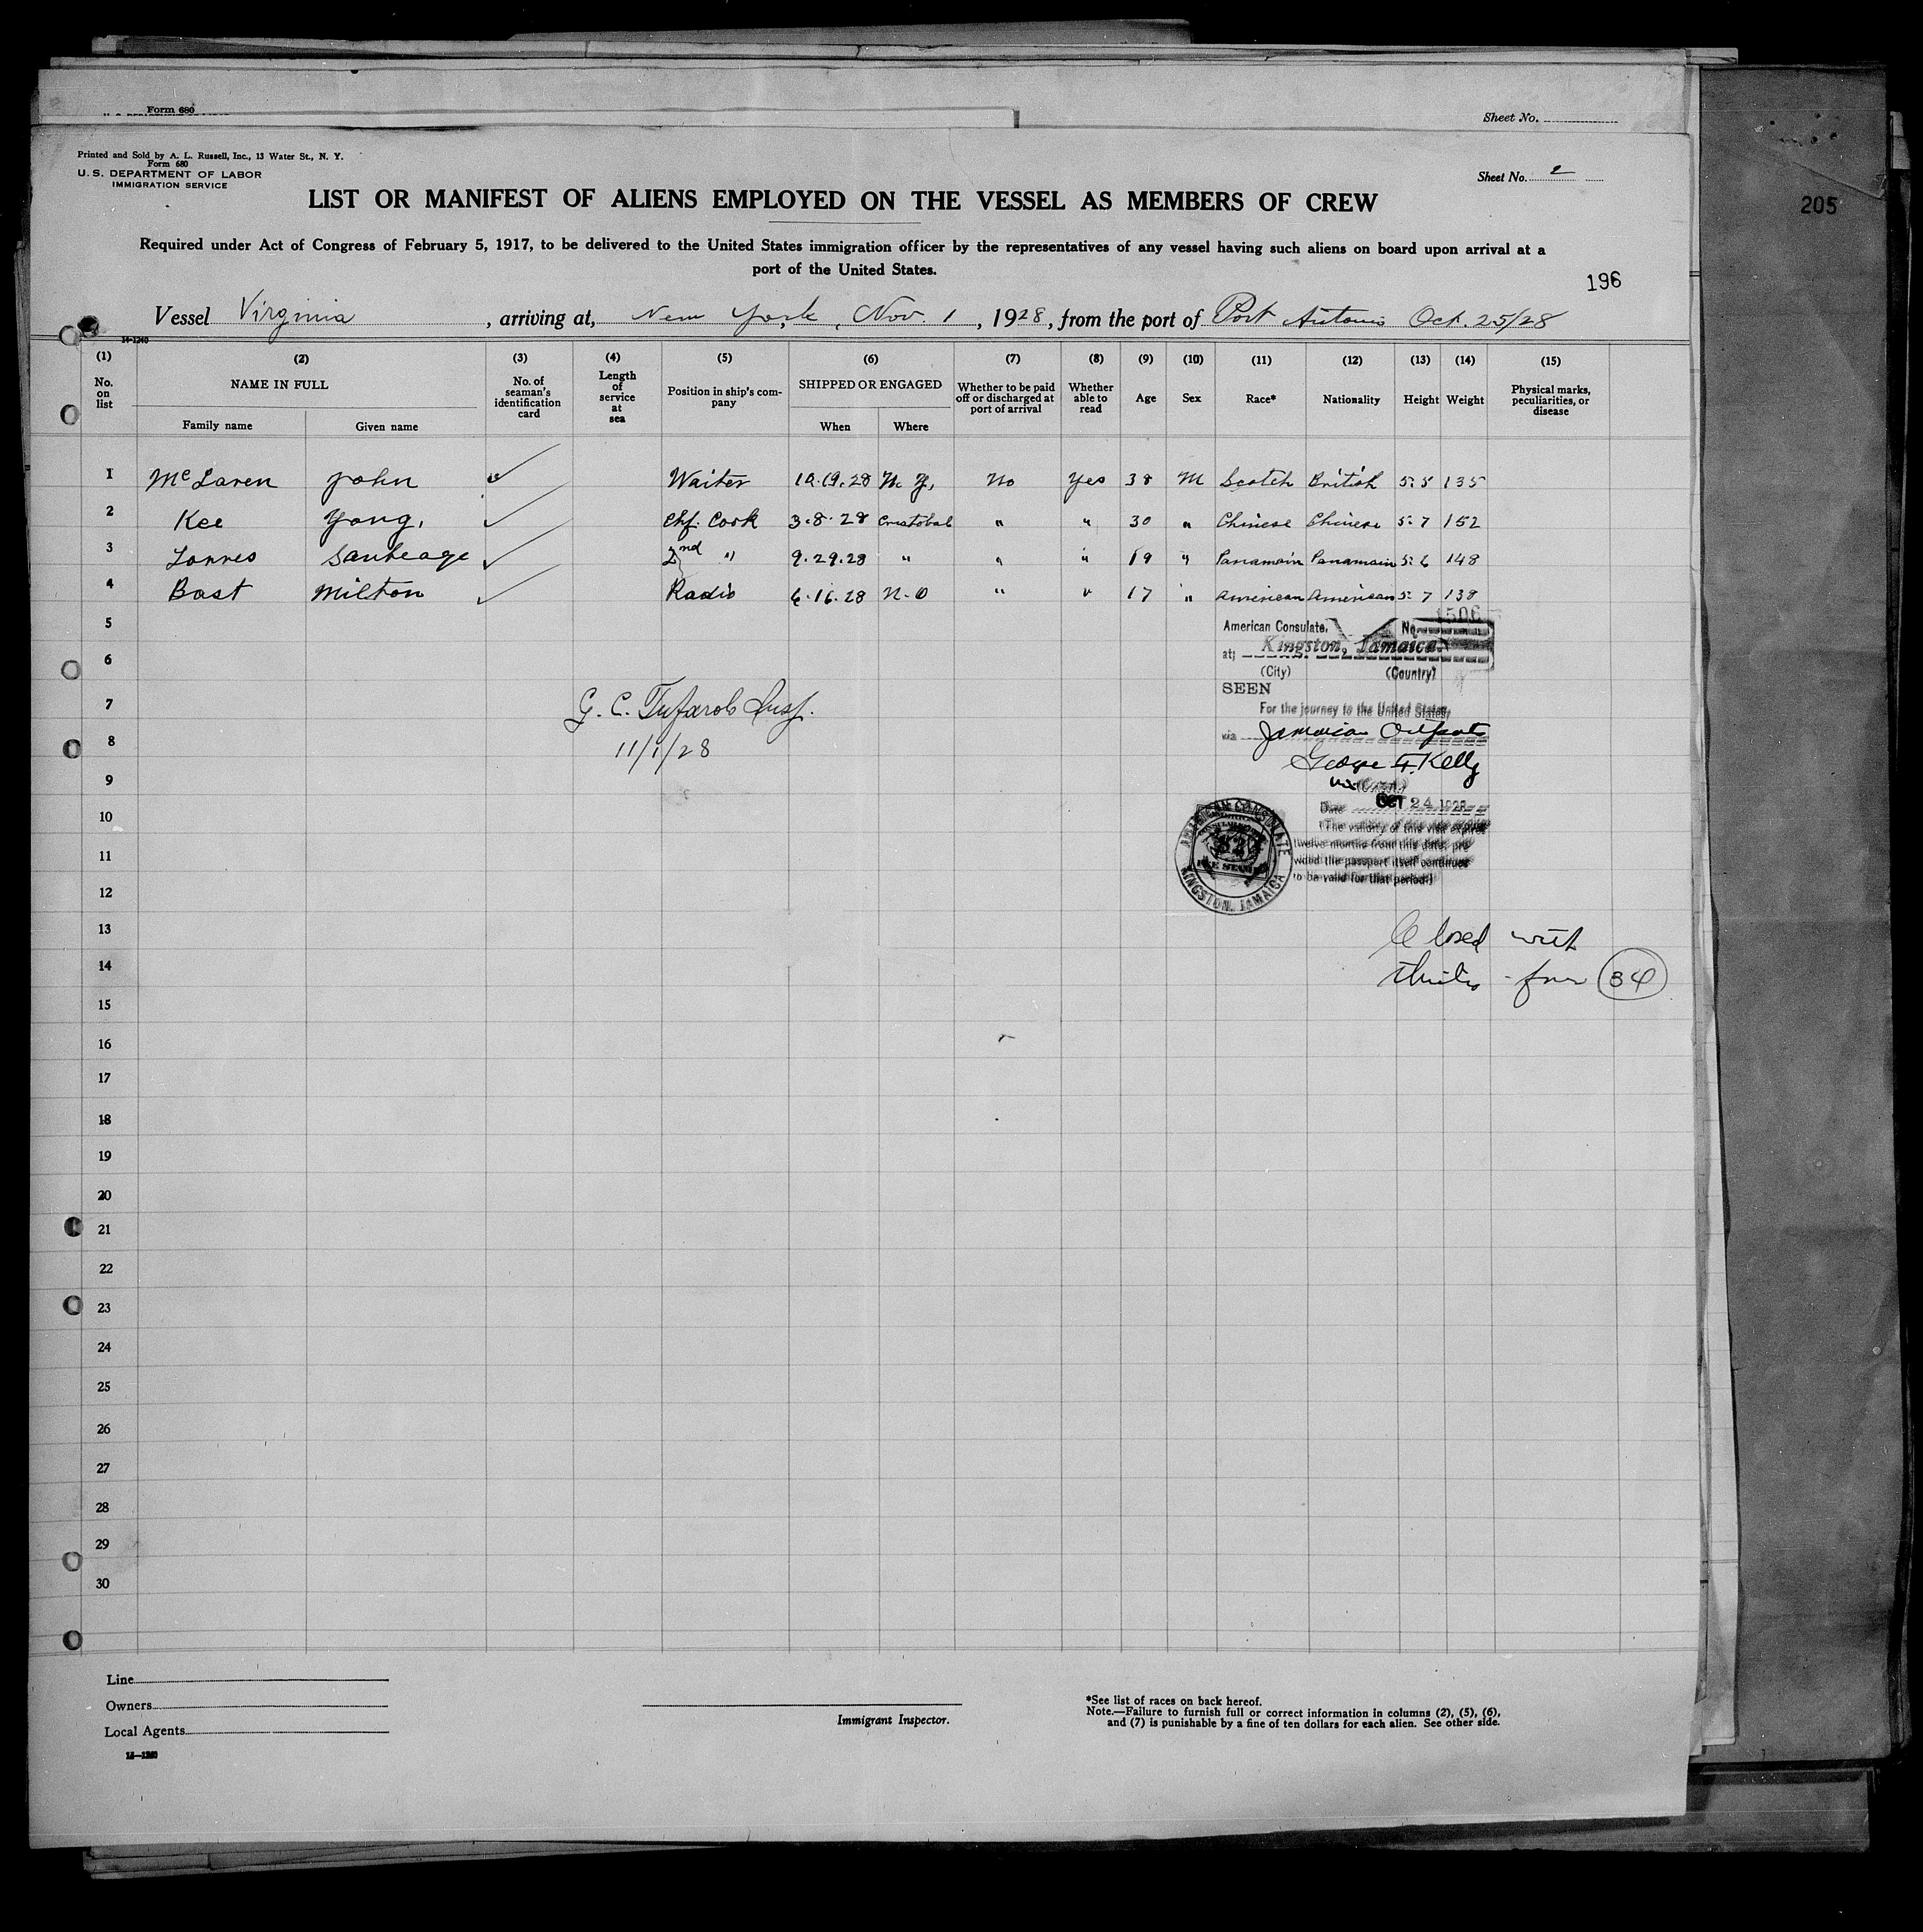 Form 680
Sheet No.
205
Printed and Sold by A. L. Russell, Inc., 13 Water St., N. Y.
Form 680
U. S. DEPARTMENT OF LABOR
IMMIGRATION SERVICE
Sheet No. 2
LIST OR MANIFEST OF ALIENS EMPLOYED ON THE VESSEL AS MEMBERS OF CREW
Required under Act of Congress of February 5, 1917, to be delivered to the United States immigration officer by the representatives of any vessel having such aliens on board upon arrival at a
port of the United States.
196
Vessel Virginia, arriving at, New York, Nov. 1, 1928, from the port of Port Antonio Oct. 25/28
14-1240
(1) (2) (3) (4) (5) (6) (7) (8) (9) (10) (11) (12) (13) (14) (15)
No. on list
NAME IN FULL
Family name Given name
No. of seaman's identification card
Length of service at sea
Position in ship's company
SHIPPED OR ENGAGED
When Where
Whether to be paid off or discharged at port of arrival
Whether able to read
Age Sex Race* Nationality Height Weight
Physical marks, peculiarities, or disease
1 McLaren John Waiter 10.19.28 N. Y. No Yes 38 M Scotch British 5.5 135
2 Kee Yong, Chf. Cook 3.8.28 Cristobal " " 30 " Chinese Chinese 5.7 152
3 Torres Santeago 2nd " 9.29.28 " " " 19 " Panamain Panamain 5.6 148
4 Bast Milton Radio 6.16.28 N.O " " 17 " American American 5.7 138
5
6
7
8
9
10
11
12
13
14
15
16
17
18
19
20
21
22
23
24
25
26
27
28
29
30
American Consulate, No. 1506
at; Kingston, Jamaica
(City) (Country)
SEEN
For the journey to the United States,
via Jamaican Outports
George F. Kelly
Date OCT 24 1928
(The validity of this visa expires
twelve months from this date, pro
vided the passport itself continues
to be valid for that period.)
AMERICAN CONSULATE
KINGSTON, JAMAICA
FEE STAMP
G. C. Tufarolo Insp.
11/1/28
Closed with
thirty-four (34)
Line
Owners
Local Agents
14—1240
Immigrant Inspector.
*See list of races on back hereof.
Note.—Failure to furnish full or correct information in columns (2), (5), (6),
and (7) is punishable by a fine of ten dollars for each alien. See other side.